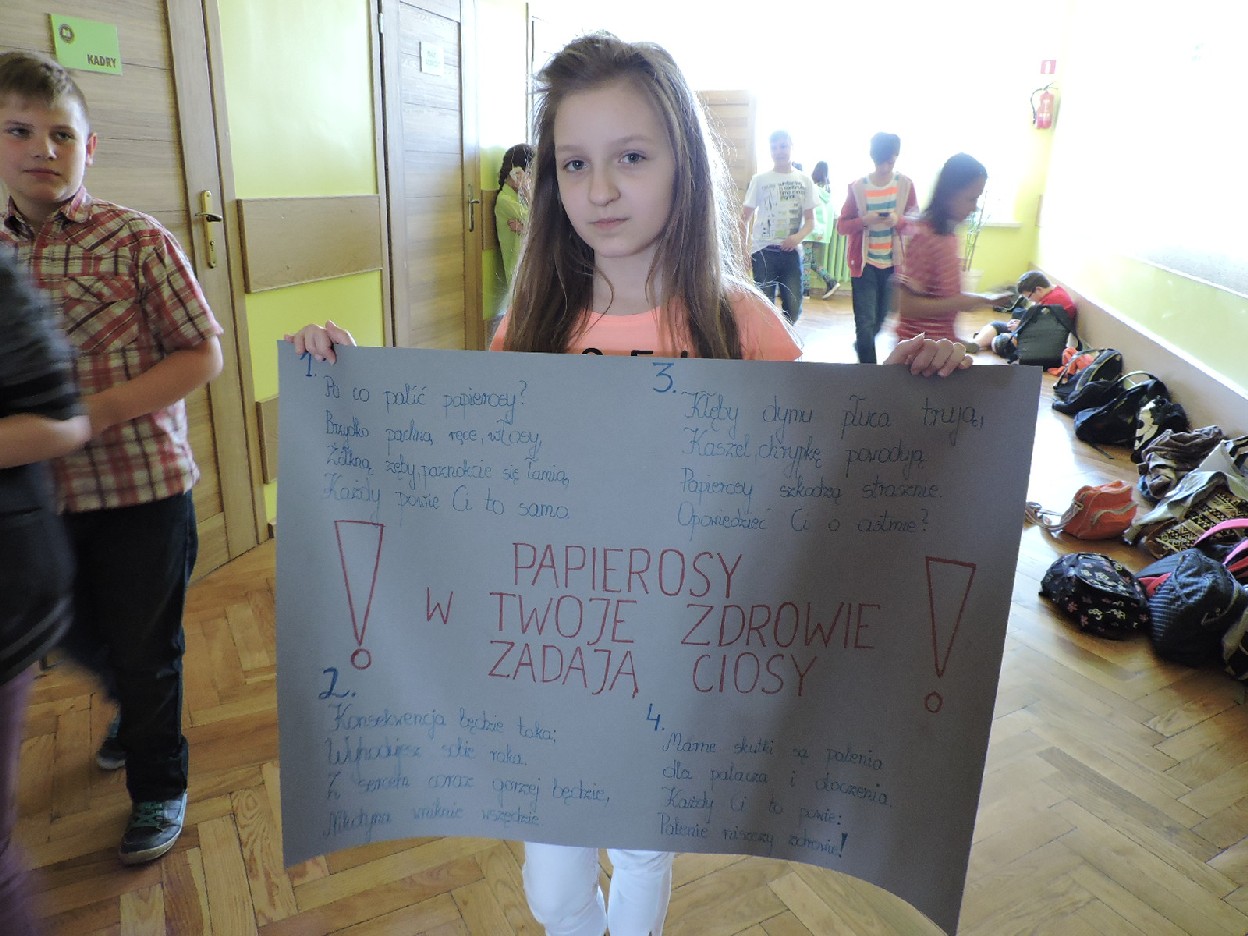 KADRY
1.
Po co palić papierosy?
Brzydko pachną ręce, włosy,
Żółkną zęby, paznokcie się łamią,
Każdy powie Ci to samo.
3.
Kłęby dymu płuca trują,
Kaszel, chrypkę powodują
Papierosy szkodzą strasznie.
Opowiedzieć Ci o astmie?
!
PAPIEROSY
W TWOJE ZDROWIE
ZADAJĄ CIOSY
!
2.
Konsekwencja będzie taka:
Wyhodujesz sobie raka.
Z sercem coraz gorzej będzie,
Nikotyna wniknie wszędzie.
4.
Marne skutki są palenia
dla palacza i otoczenia.
Każdy Ci to powie:
Palenie niszczy zdrowie!